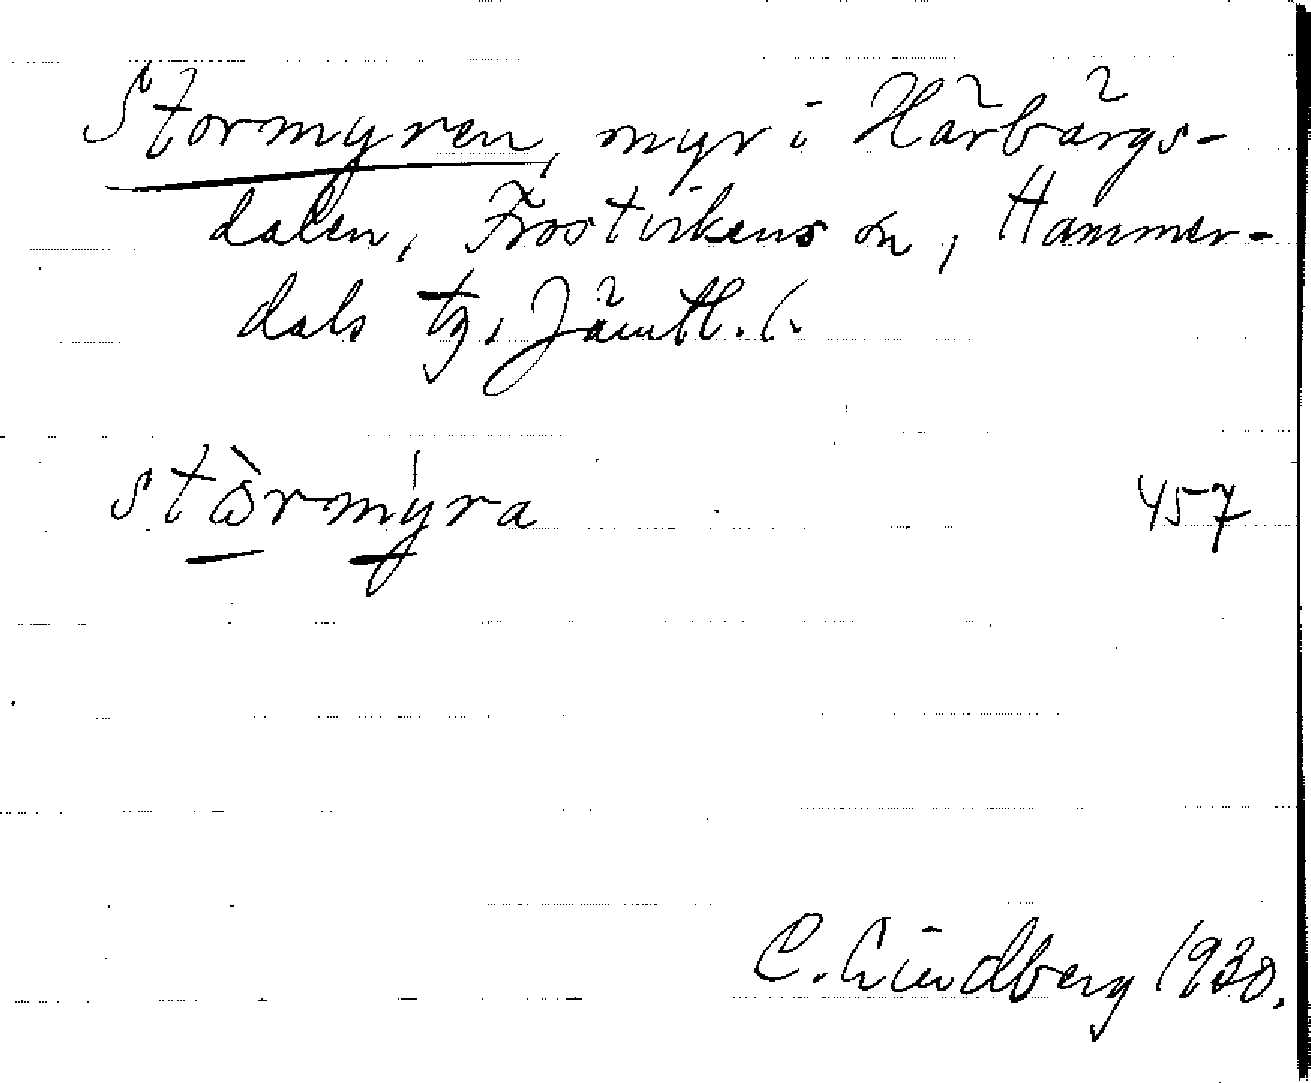 Stormyren, myr i Härbärgs-
dalen, Frostvikens sn, Hammer-
dals tg, Jämtl. l.
stòrmýra 457
C. Lindberg 1930.